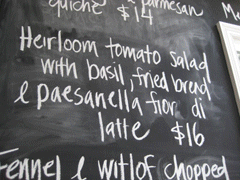 parmesan
quiche $14
Heirloom tomato salad
with basil, fried bread
& paesanella fior di
latte $16
Fennel & witlof chopped